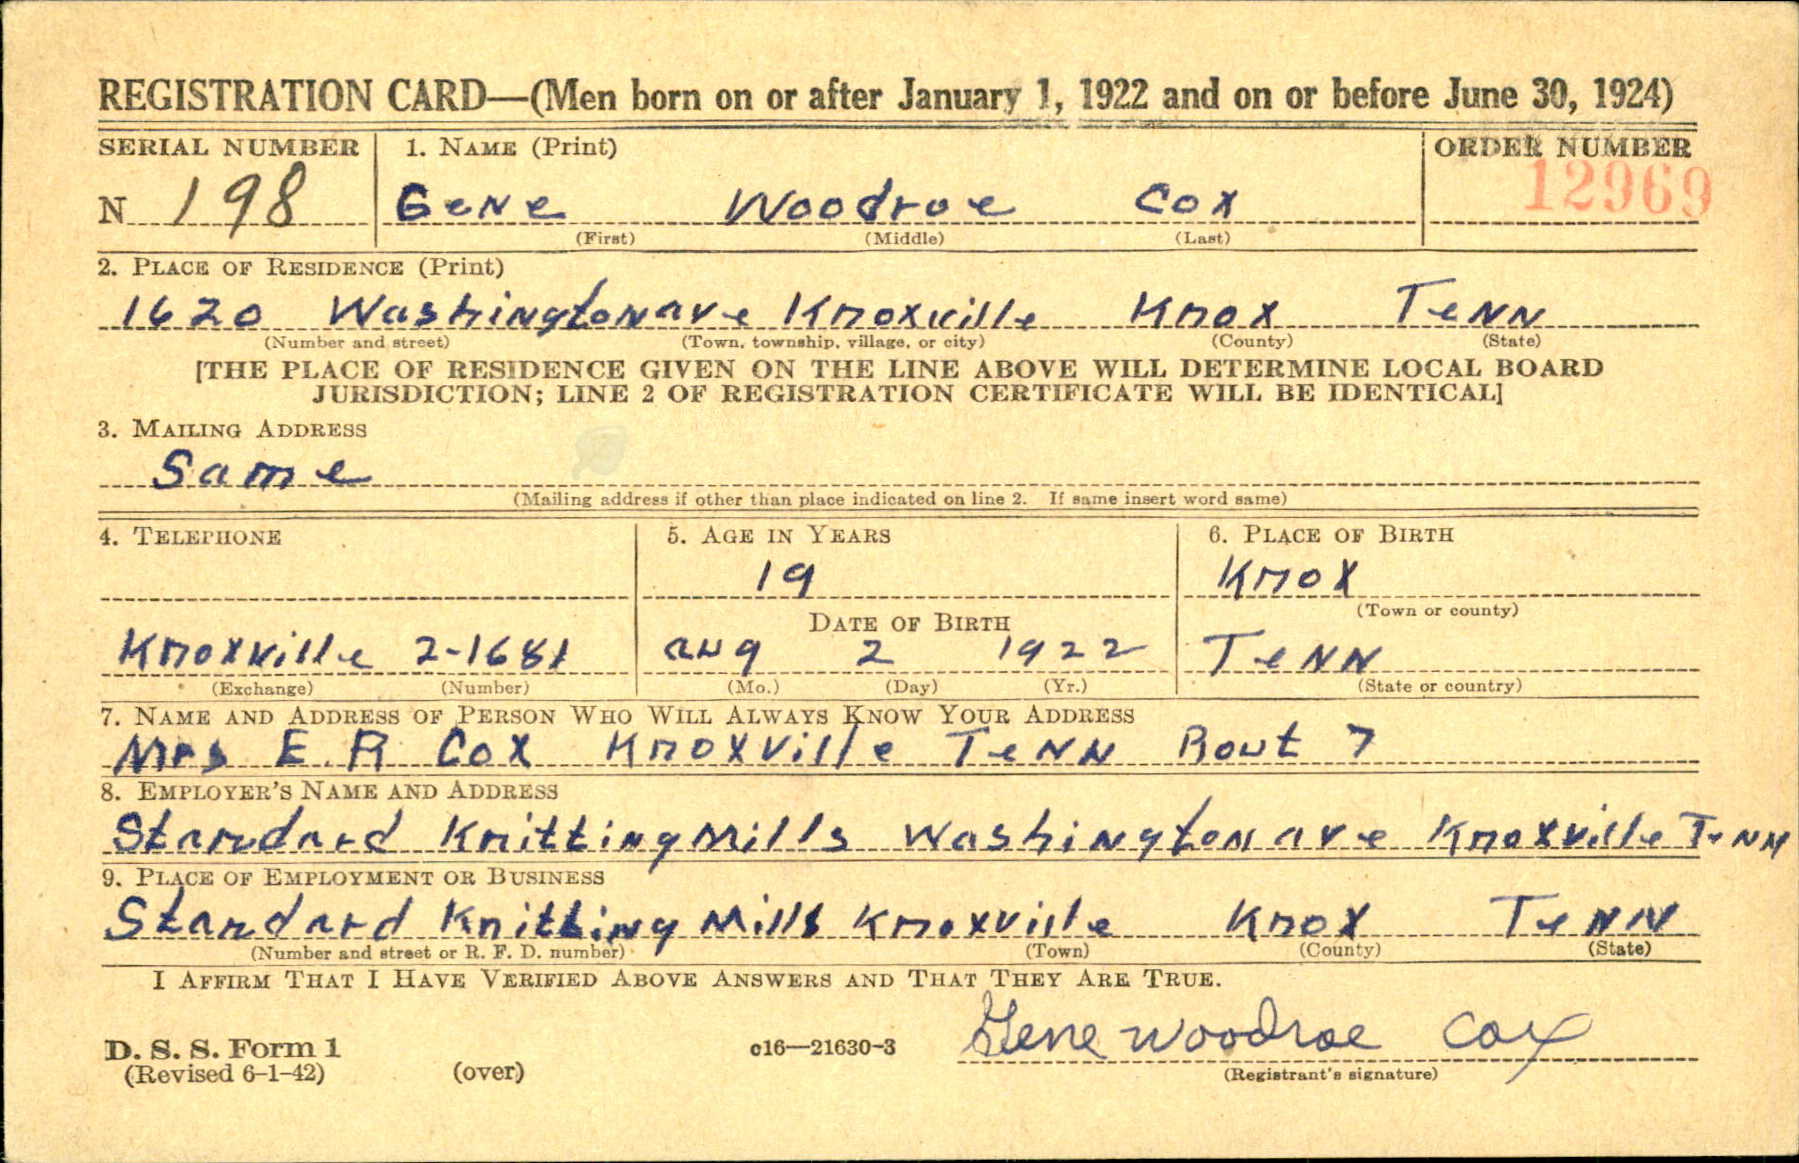 REGISTRATION CARD—(Men born on or after January 1, 1922 and on or before June 30, 1924)
SERIAL NUMBER 1. NAME (Print) ORDER NUMBER
N 198 Gene Woodroe Cox 12969
(First) (Middle) (Last)
2. PLACE OF RESIDENCE (Print)
1620 Washington ave Knoxville Knox Tenn
(Number and street) (Town, township, village, or city) (County) (State)
[THE PLACE OF RESIDENCE GIVEN ON THE LINE ABOVE WILL DETERMINE LOCAL BOARD
JURISDICTION; LINE 2 OF REGISTRATION CERTIFICATE WILL BE IDENTICAL]
3. MAILING ADDRESS
Same
(Mailing address if other than place indicated on line 2. If same insert word same)
4. TELEPHONE 5. AGE IN YEARS 6. PLACE OF BIRTH
19 Knox
DATE OF BIRTH (Town or county)
Knoxville 2-1681 aug 2 1922 Tenn
(Exchange) (Number) (Mo.) (Day) (Yr.) (State or country)
7. NAME AND ADDRESS OF PERSON WHO WILL ALWAYS KNOW YOUR ADDRESS
Mrs E. R Cox Knoxville Tenn Rout 7
8. EMPLOYER'S NAME AND ADDRESS
Standard Knitting Mills Washington ave Knoxville Tenn
9. PLACE OF EMPLOYMENT OR BUSINESS
Standard Knitting Mills Knoxville Knox Tenn
(Number and street or R. F. D. number) (Town) (County) (State)
I AFFIRM THAT I HAVE VERIFIED ABOVE ANSWERS AND THAT THEY ARE TRUE.
Gene Woodroe Cox
D. S. S. Form 1 c16—21630-3
(Revised 6-1-42) (over) (Registrant's signature)